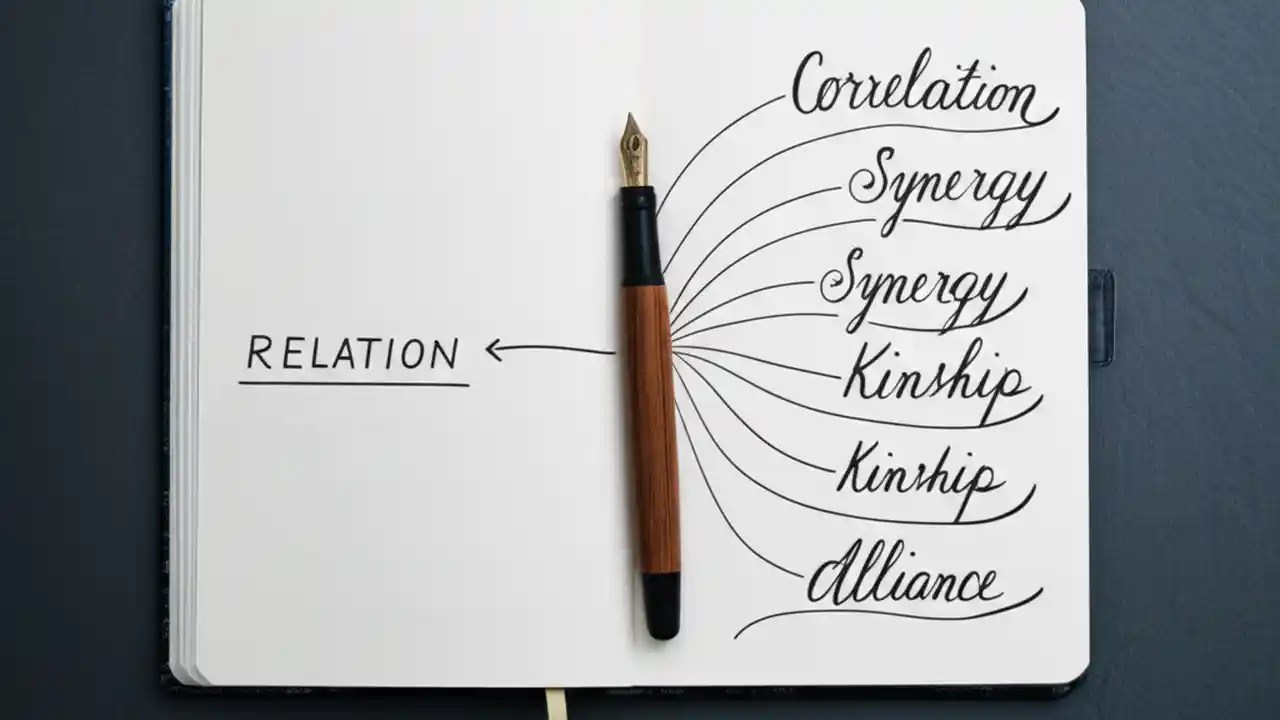 RELATION
Correlation
Synergy
Synergy
Kinship
Kinship
Alliance